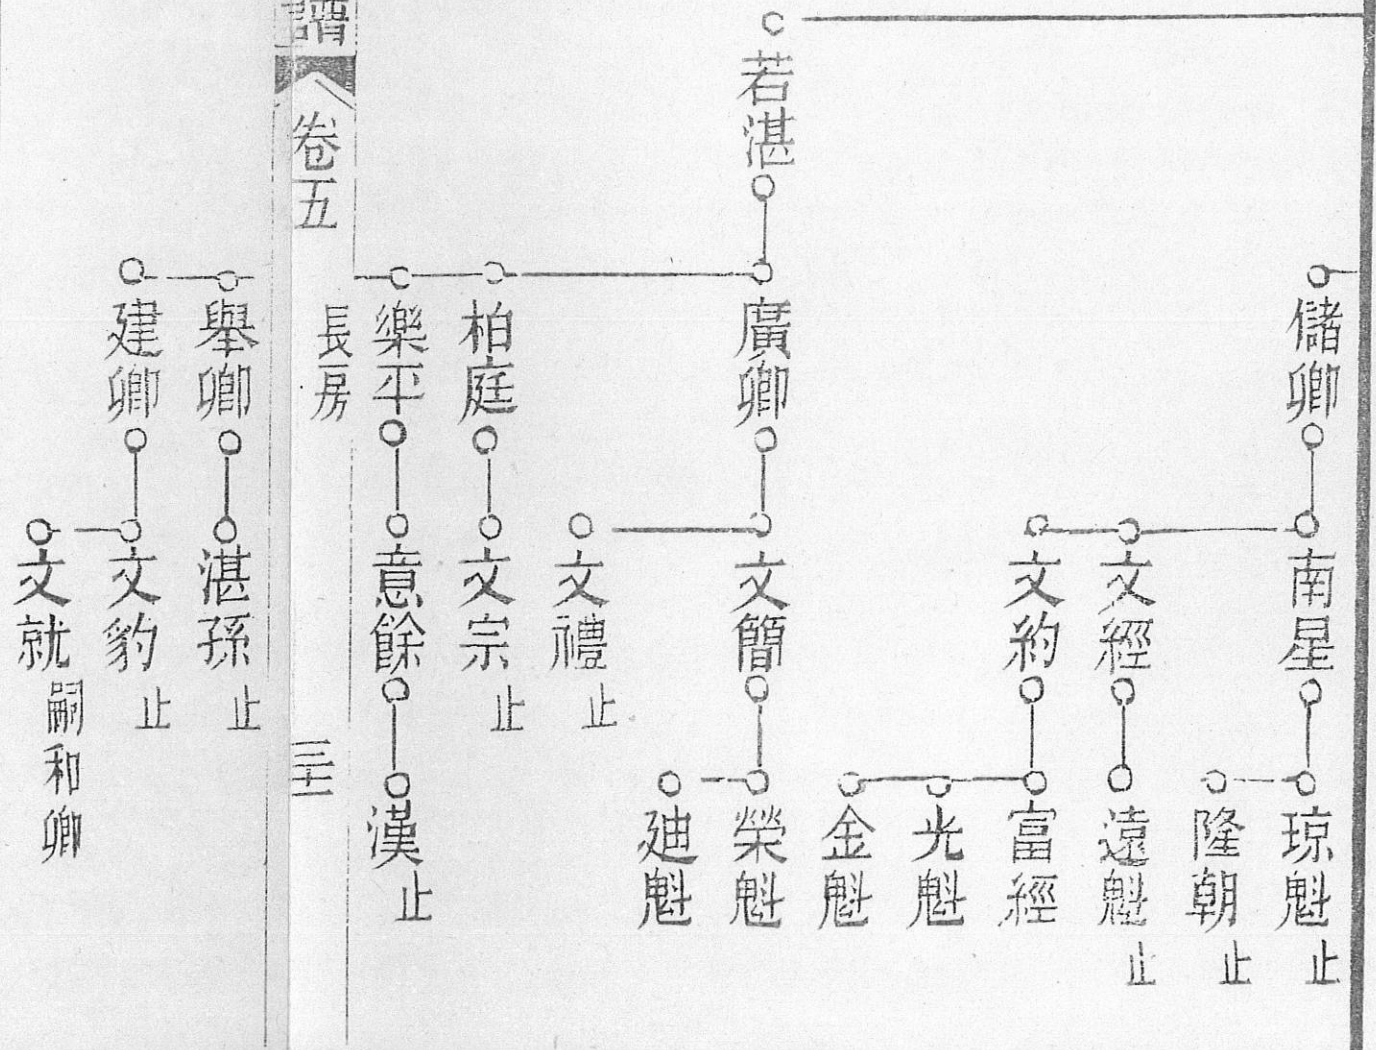 儲卿
南星
琼魁止
隆朝止
文經
遠魁止
文約
富經
光魁
金魁
若湛
廣卿
文簡
榮魁
廸魁
文禮止
柏庭
文宗止
樂平
意餘
漢止
譜
卷五
長房
三十二
舉卿
湛孫止
建卿
文豹止
文就嗣和卿